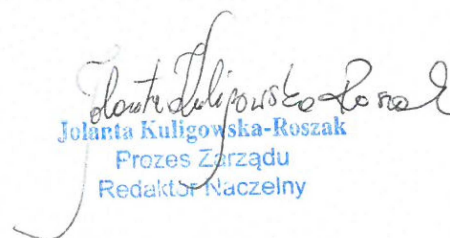 Jolanta Kuligowska-Roszak
Jolanta Kuligowska-Roszak
Prozes Zarządu
Redaktor Naczelny